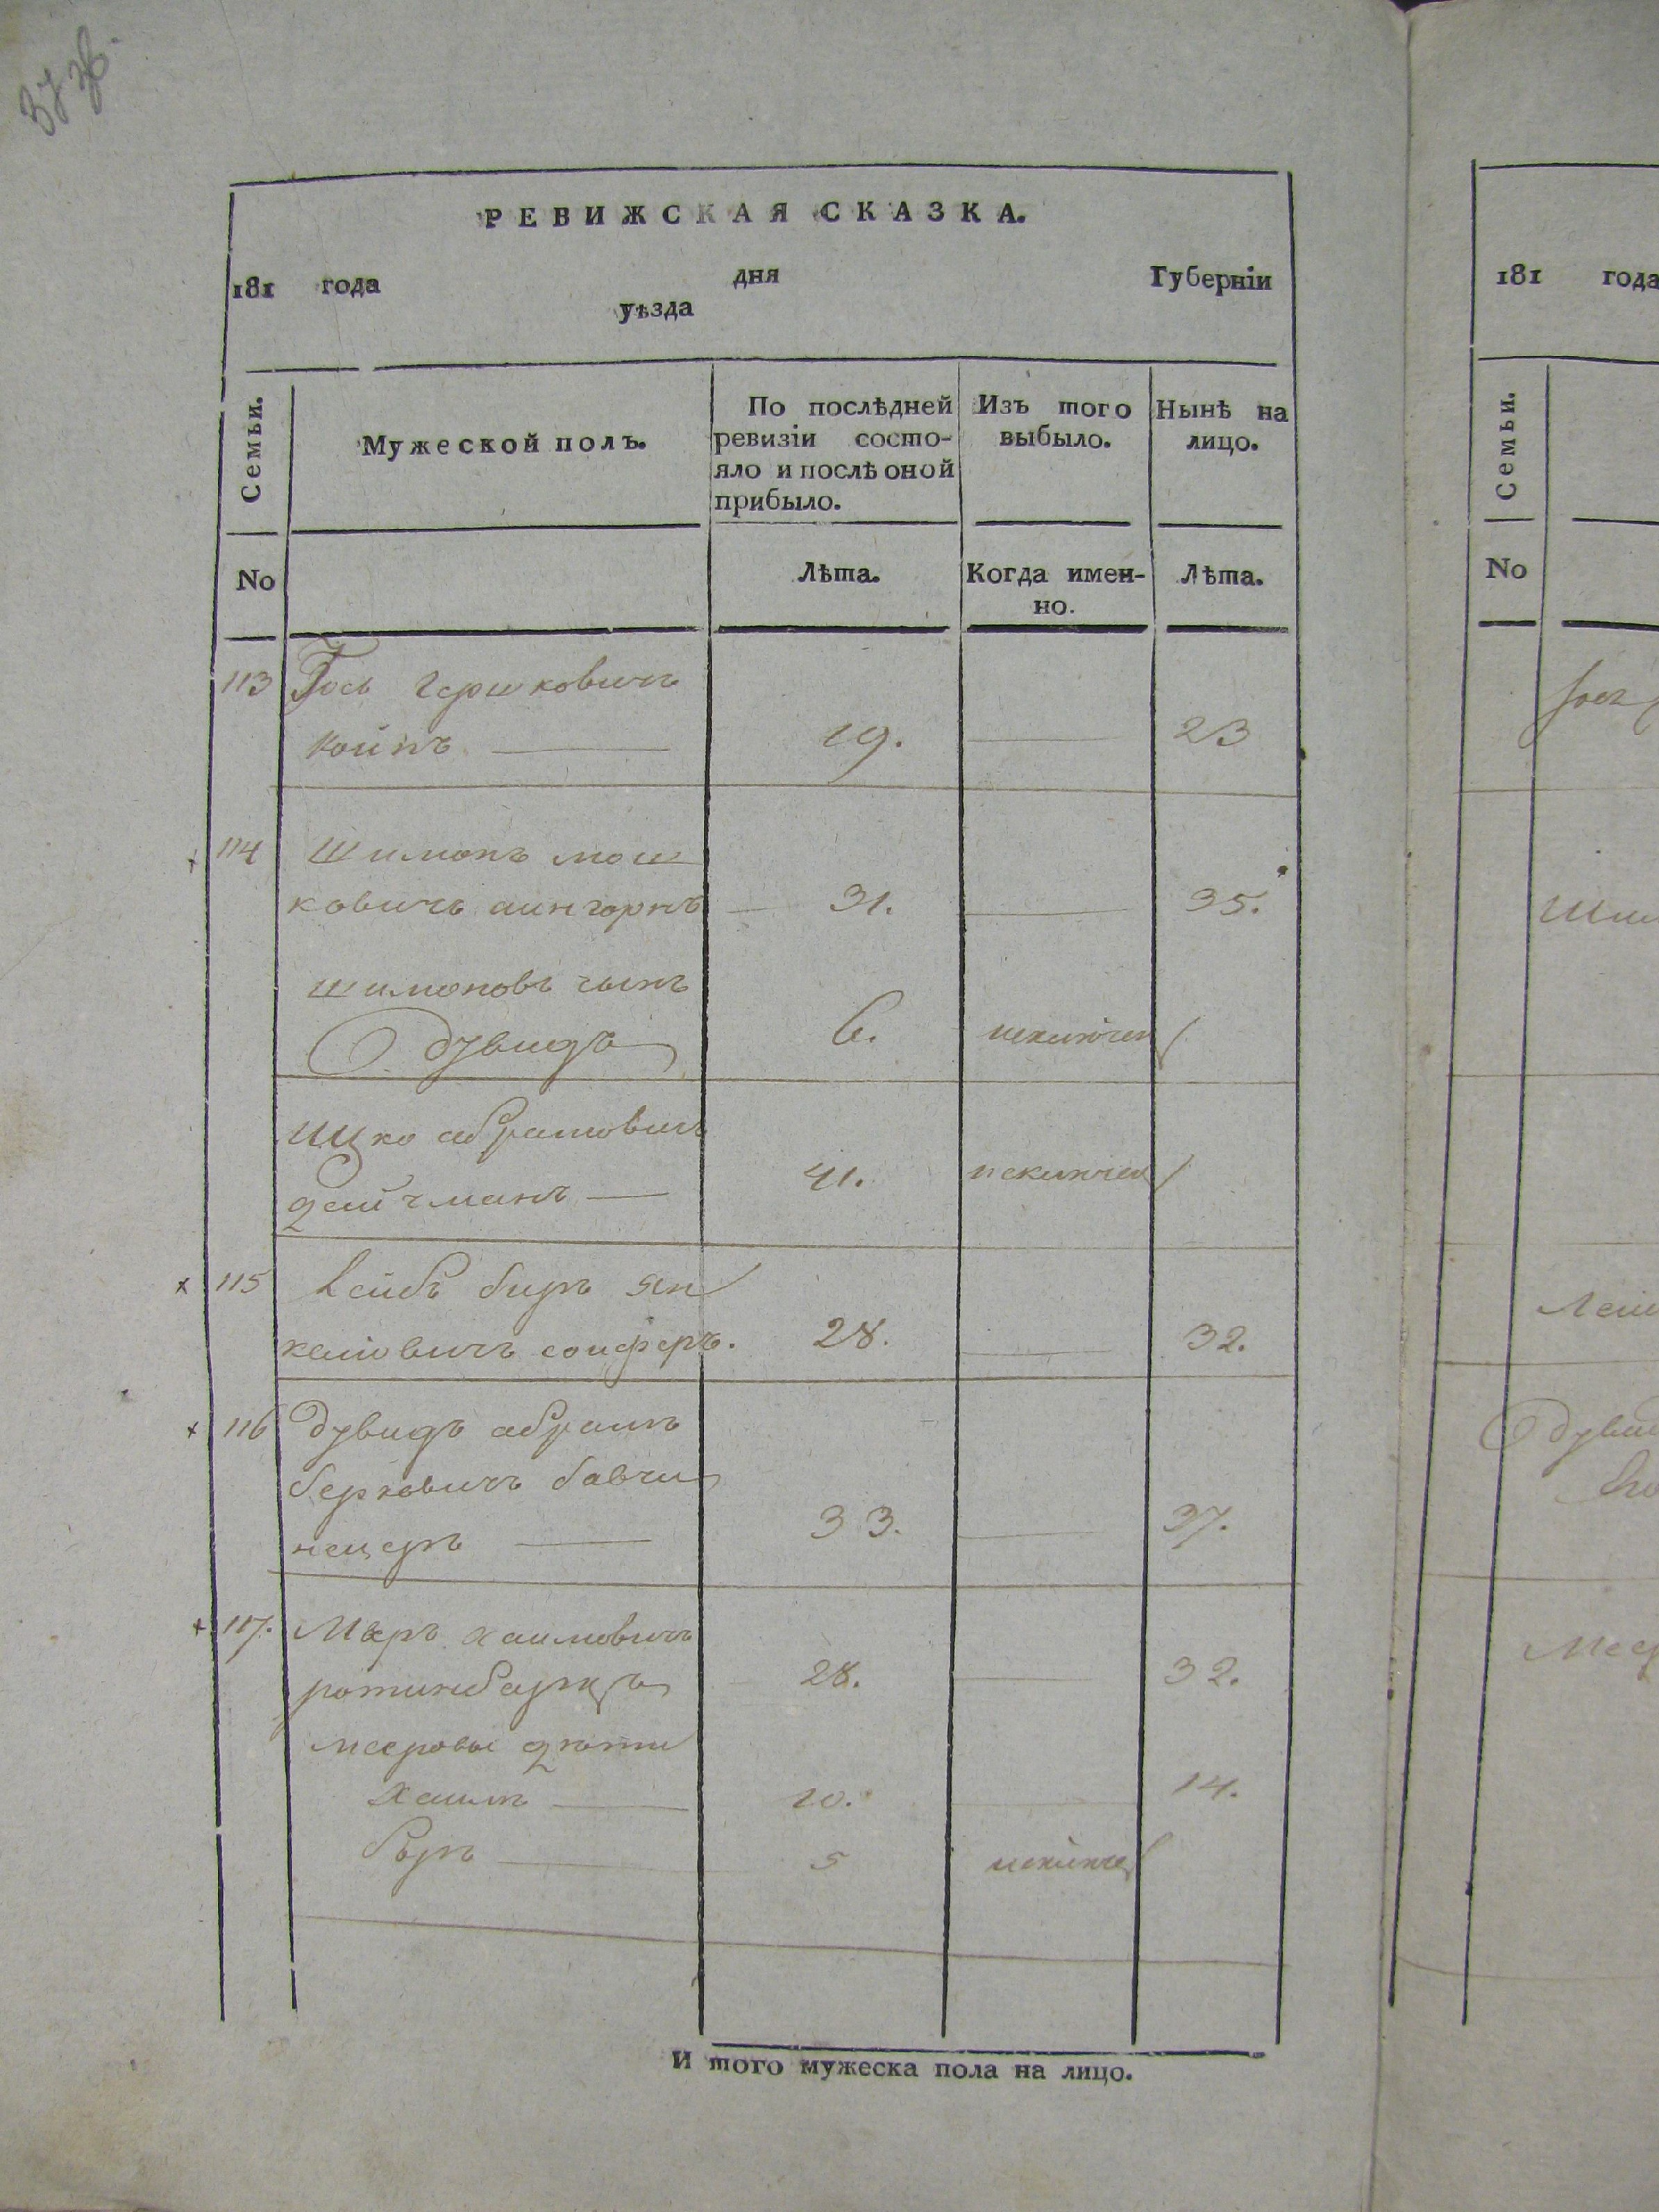 РЕВИЖСКАЯ СКАЗКА.
181 года дня Губерніи
уѣзда
Семьи.
Мужеской полъ.
По послѣдней ревизіи состо-
яло и послѣ оной
прибыло.
Изъ того
выбыло.
Нынѣ на
лицо.
No
Лѣта.
Когда имен-
но.
Лѣта.
113 Іось Гершковичъ
19. 23
114 Шимонъ мош
ковичъ аингорнъ 31. 35.
шимоновъ сынъ
дувидъ 6. исключен
Ицко абрамовичъ
дайчманъ 41. исключен
115 Лейбъ биръ Ян
келовичъ сойферъ. 28. 32.
116 Дувидъ абрамъ
берковичъ бавчи
нецеръ 33. 37.
117. Меръ Хаимовичъ
28. 32.
мееровы дѣти
Хаимъ 10. 14.
Беръ 5 исключе
И того мужеска пола на лицо.
181 года
Семьи.
No
Шим
Лей
Дувид
Меер